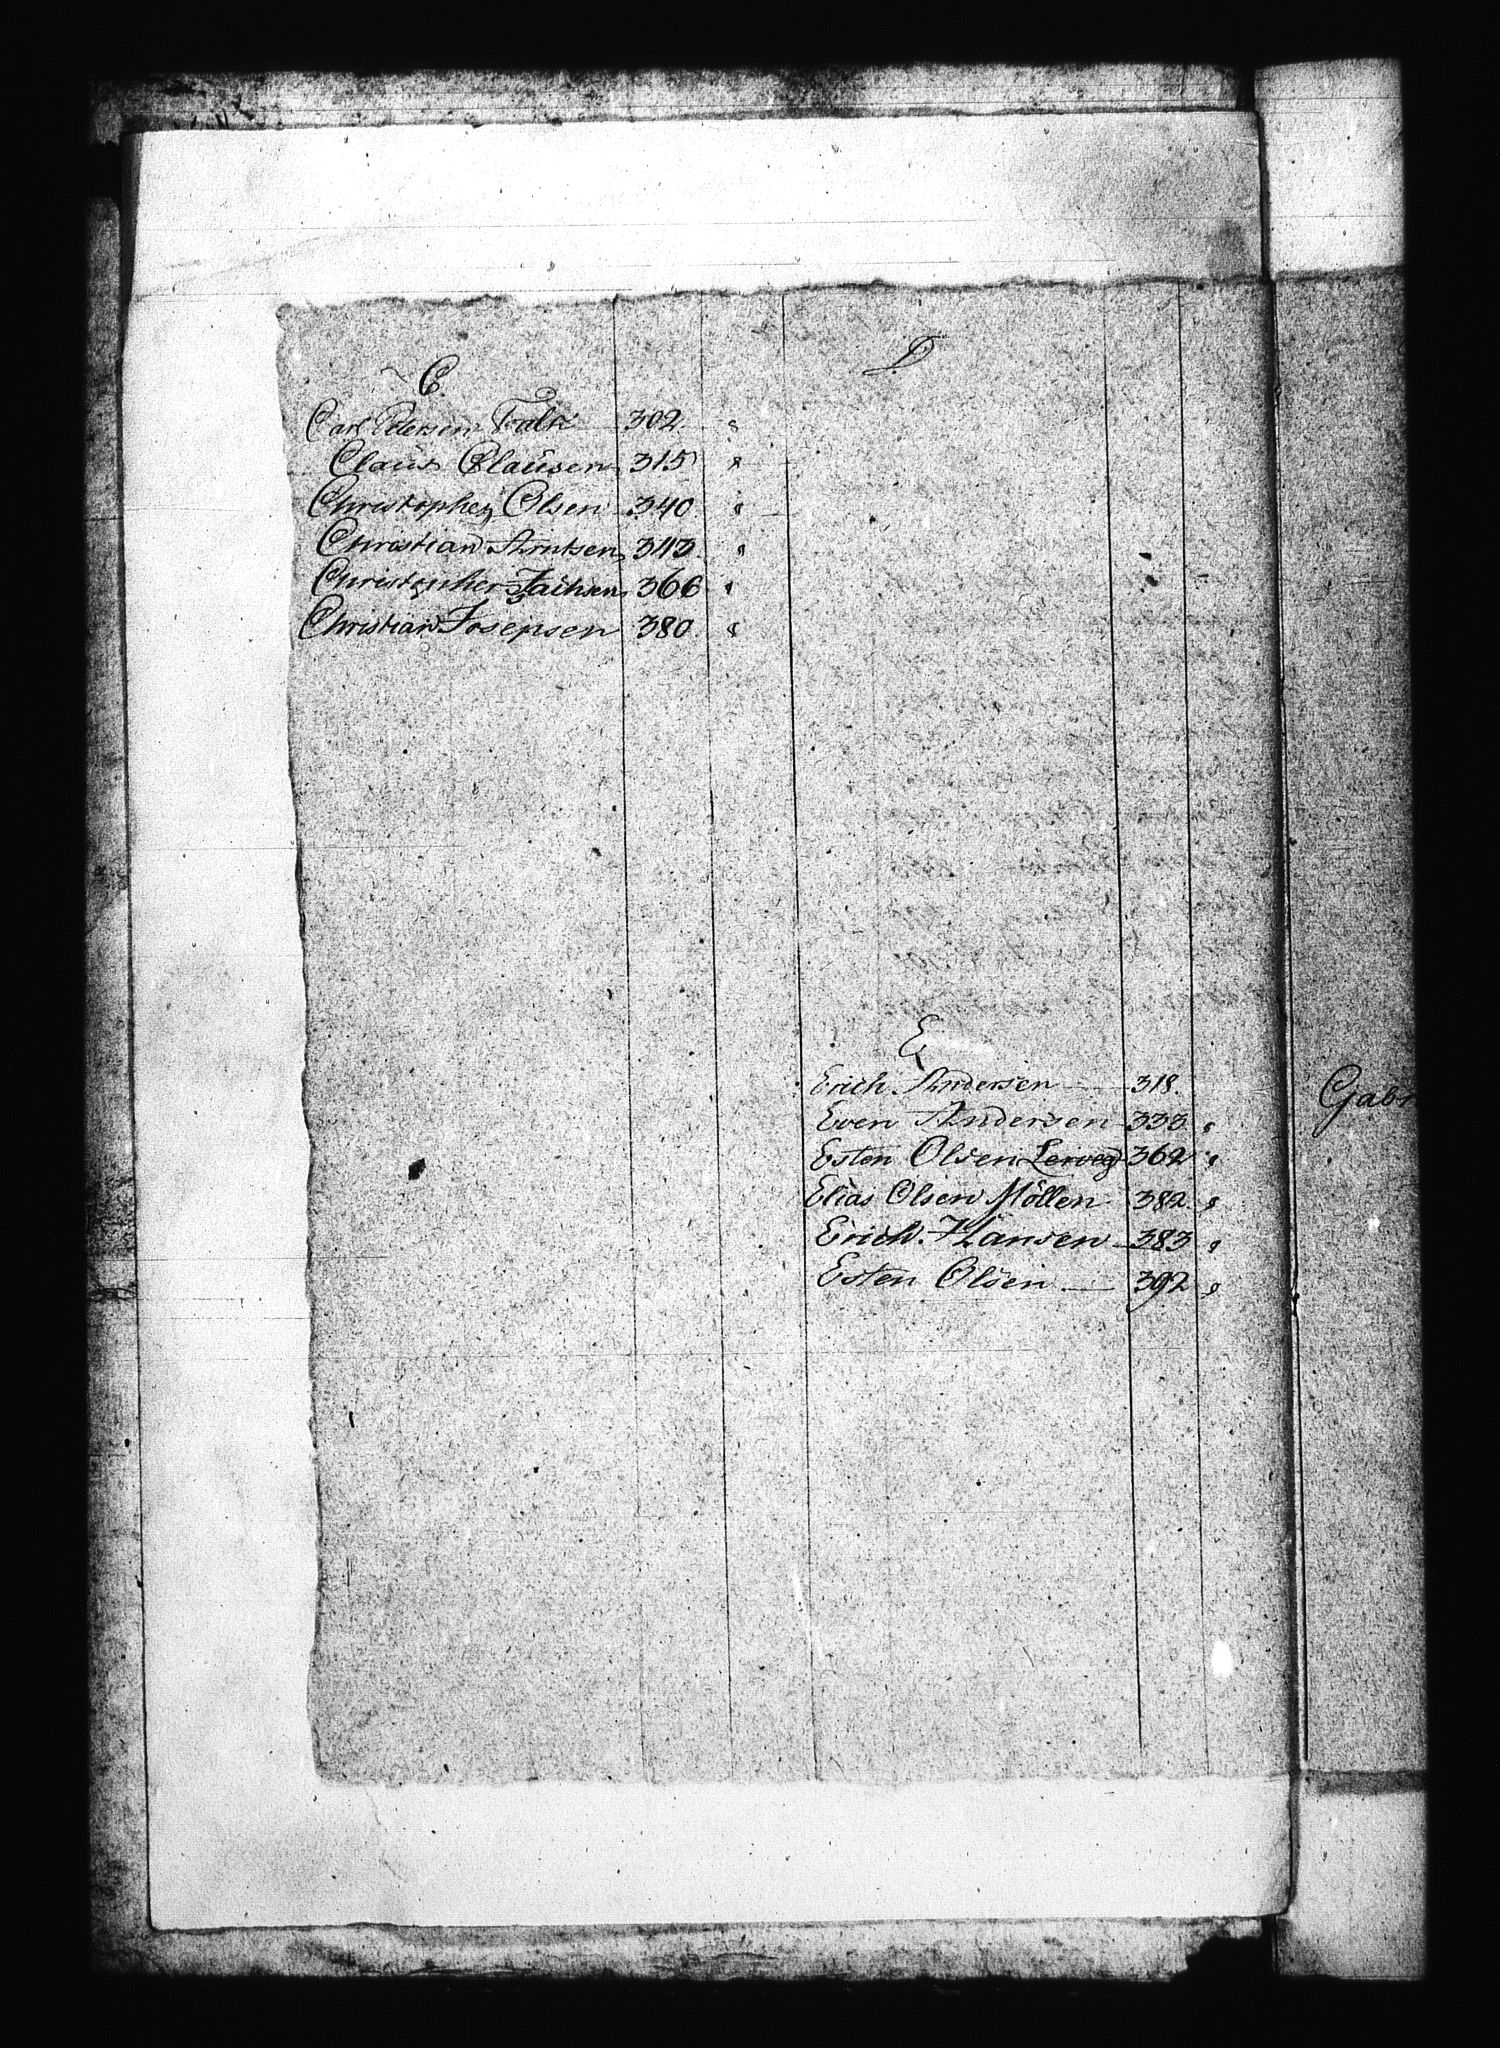 C.
Carl Petersen Falk 302 "
Claus Clausen 315 "
Christopher Olsen 340 "
Christian Arntsen 343 "
Christopher 366 "
Christian Josepsen 380 "
D
E
Erich Andersen 318
Even Andersen 333 "
Esten Olsen Lerveg 362 "
Elias Olsen Möllen 382 "
Erich Hansen 383 "
Esten Olsen 392 "
Gabr